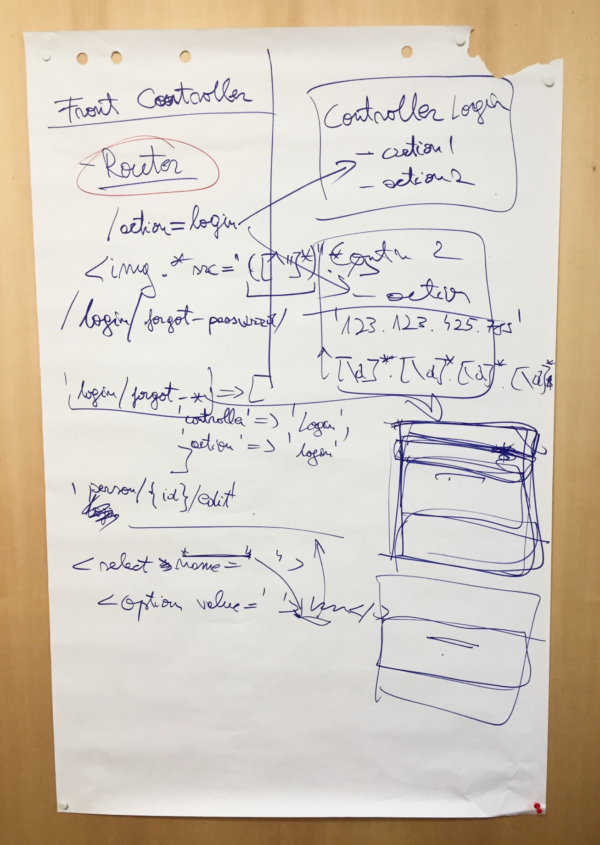 Front Controller
- Router
/action=login
<img .* src="([^"]*)".*>
/login/forgot-password/
'login/forgot-*' => [
'controller' => 'Login',
'action' => 'login'
]
'person/{id}/edit'
<select name=" ">
<option value=' '>
Controller Login
- action1
- action2
Contr 2
- action
'123.123.425.755'
^[\d]*.[\d]*.[\d]*.[\d]*$